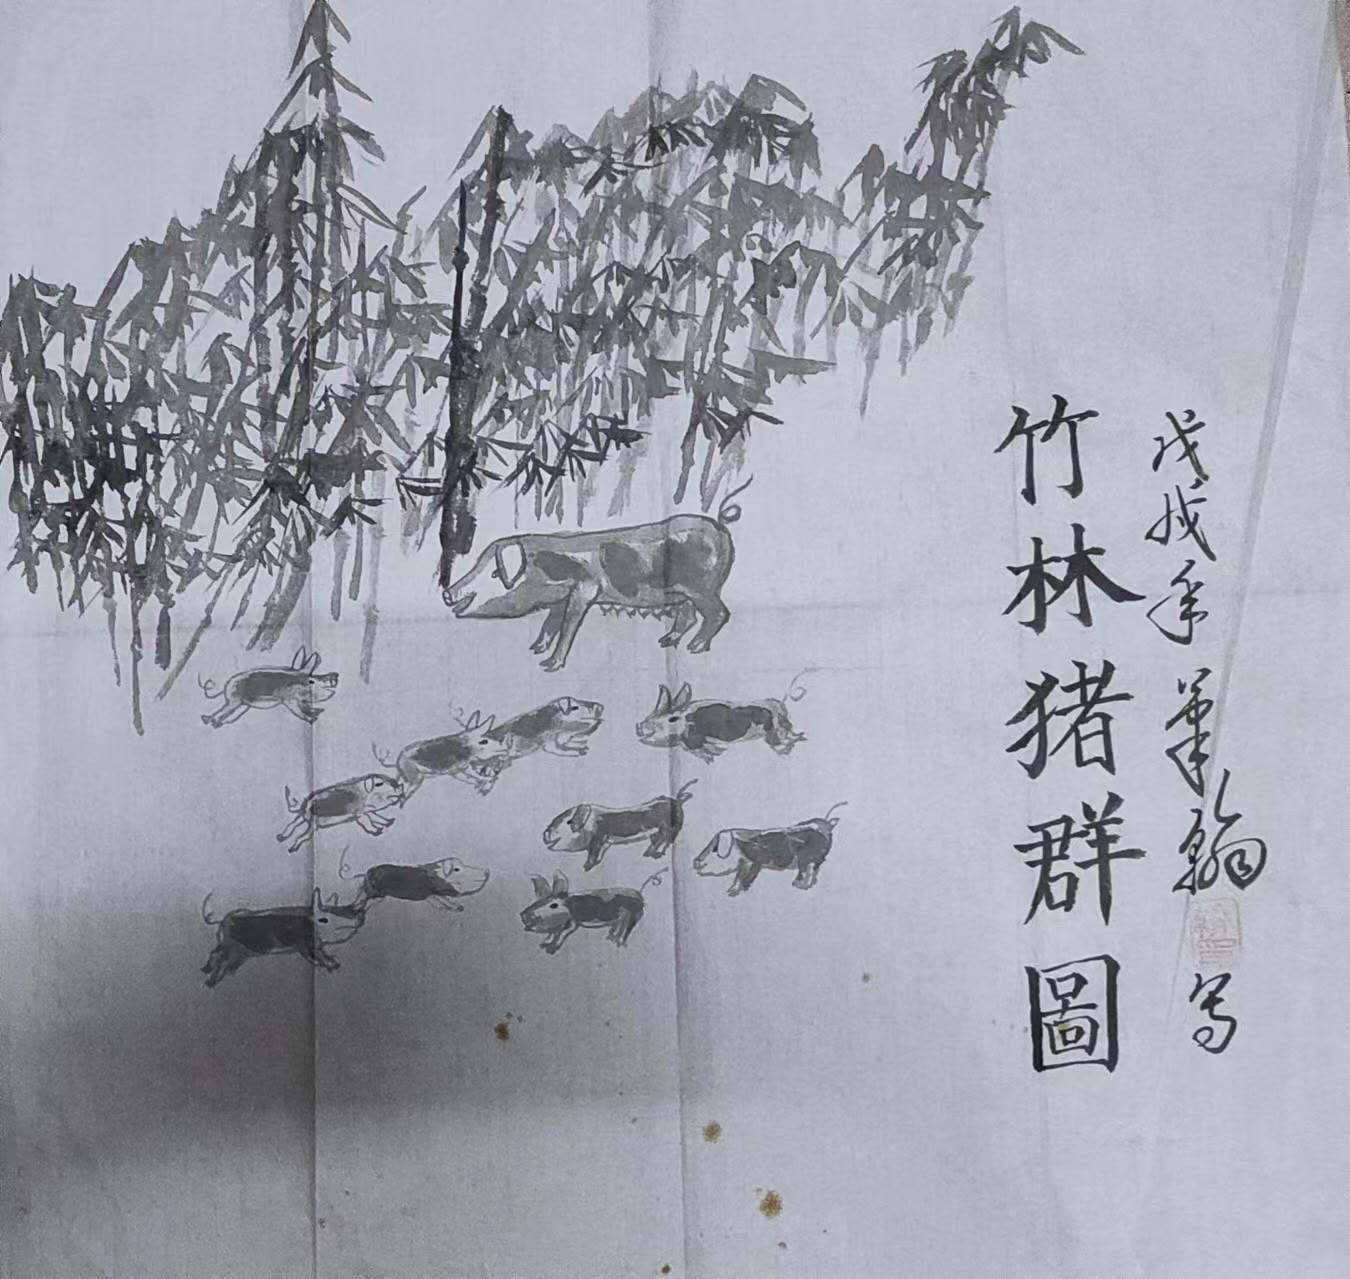 戊戌年 筆翰 写
竹林猪群圖